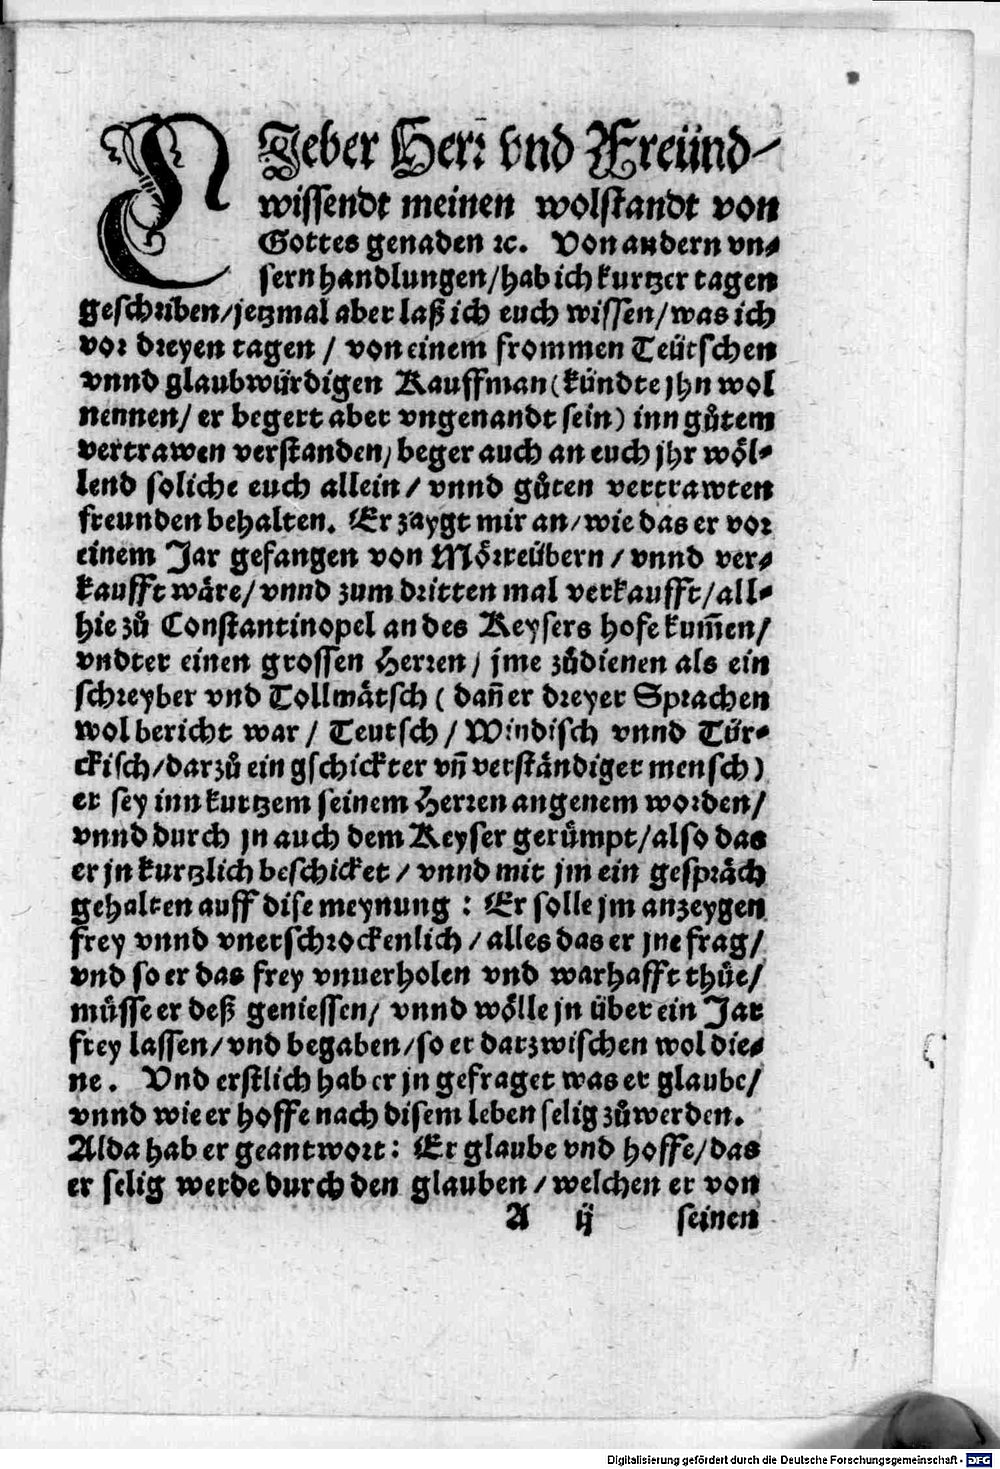 LJeber Herr vnd Freünd/
wissendt meinen wolstandt von
Gottes genaden ꝛc. Von andern vn⸗
sern handlungen/ hab ich kurtzer tagen
geschriben/ jetzmal aber laß ich euch wissen/ was ich
vor dreyen tagen / von einem frommen Teütschen
vnnd glaubwürdigen Kauffman (kündte jhn wol
nennen/ er begert aber vngenandt sein) inn gůtem
vertrawen verstanden/ beger auch an euch jhr wöl⸗
lend soliche euch allein / vnnd gůten vertrawten
freunden behalten. Er zaygt mir an/ wie das er vor
einem Jar gefangen von Mörreübern / vnnd ver⸗
kaufft wäre/ vnnd zum dritten mal verkaufft/ all⸗
hie zů Constantinopel an des Keysers hofe kum̃en/
vndter einen grossen Herren/ jme zůdienen als ein
schreyber vnd Tollmätsch ( dañ er dreyer Sprachen
wol bericht war / Teutsch / Windisch vnnd Tür⸗
ckisch/ darzů ein gschickter vñ verständiger mensch)
er sey inn kurtzem seinem Herren angenem worden/
vnnd durch jn auch dem Keyser gerümpt/ also das
er jn kurtzlich beschicket / vnnd mit jm ein gespräch
gehalten auff dise meynung : Er solle jm anzeygen
frey vnnd vnerschrockenlich / alles das er jne frag/
vnd so er das frey vnuerholen vnd warhafft thüe/
müsse er deß geniessen/ vnnd wölle jn über ein Jar
frey lassen/ vnd begaben/ so er darzwischen wol die⸗
ne. Vnd erstlich hab er jn gefraget was er glaube/
vnnd wie er hoffe nach disem leben selig zůwerden.
Alda hab er geantwort: Er glaube vnd hoffe/ das
er selig werde durch den glauben / welchen er von
A ij seinen
Digitalisierung gefördert durch die Deutsche Forschungsgemeinschaft - DFG